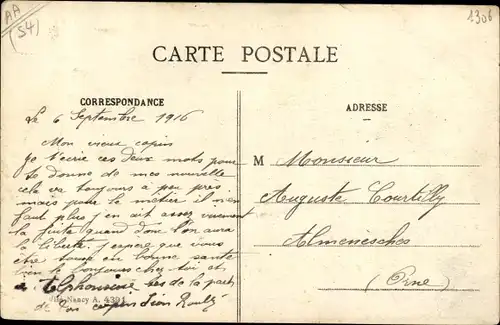 AA
(54)
1306
CARTE POSTALE
CORRESPONDANCE
ADRESSE
Le 6 Septembre 1916
Mon vieux copin
Je t'ecrie ces deux mots pour
te donne de mes nouvelle
cela va toujours a peu près
mais pour le métier il n'en
faut plus j'en ait assez vivement
la fuite quand donc l'on aura
la liberté. J'espere que vous
être tous en bonne sante
bien le toujours chez toi et
a Alphonsine de la part
de ton copin Léon
M Monsieur
Auguste Courtilly
Almenesches
(Orne)
Nancy A. 4391